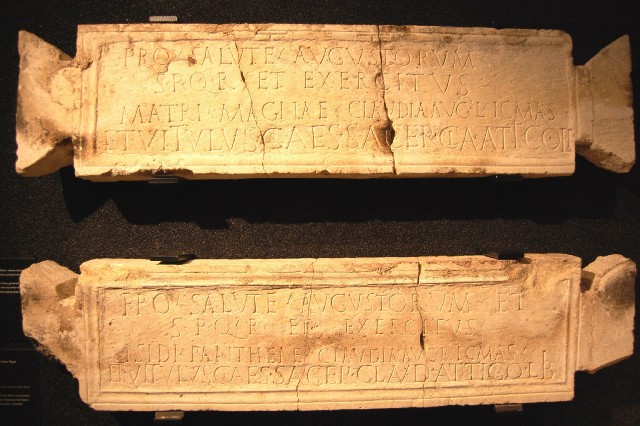 PRO SALUTE AUGUSTORUM
S·P·Q·R· ET EXERCITUS
MATRI MAGNAE CLAUDIA AUG L ICMAS
ET VITULUS CAES SACER CLA ATTICO LI
PRO SALUTE AUGUSTORUM ET
S·P·Q·R· ET EXERCITUS
ISIDI PANTHEAE CLAUDIA AUG L ICMAS
ET VITULUS CAES SACER CLAUD ATTICO LIB